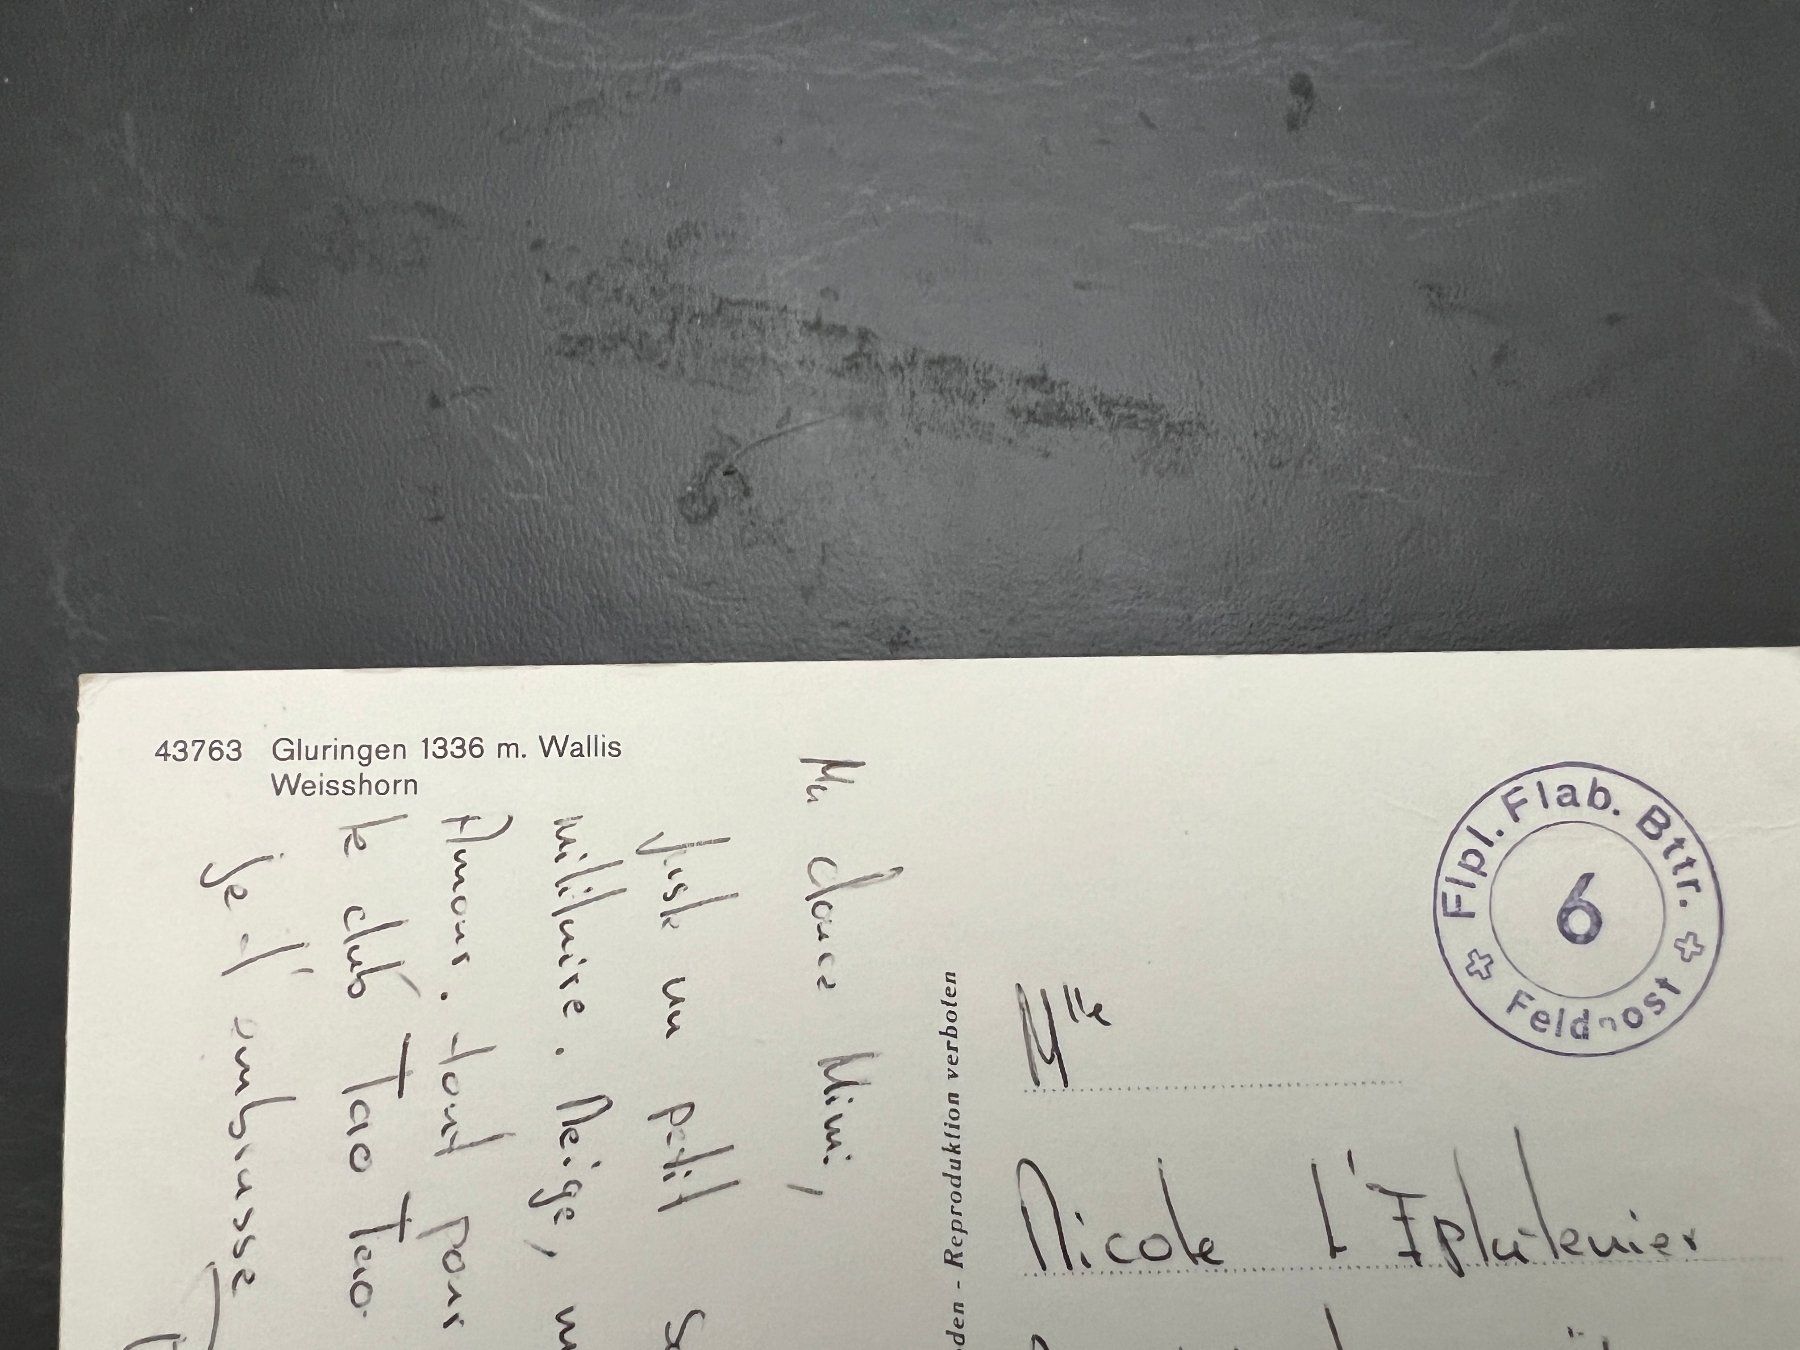 43763 Gluringen 1336 m. Wallis
Weisshorn
Ma douce Mimi,
Juste un petit
militaire. Neige,
Amour. tout pour
le club Tao Tao.
je t'embrasse
den - Reproduktion verboten
Flpl. Flab. Bttr.
6
Feldpost
Mlle
Nicole L'Eplattenier